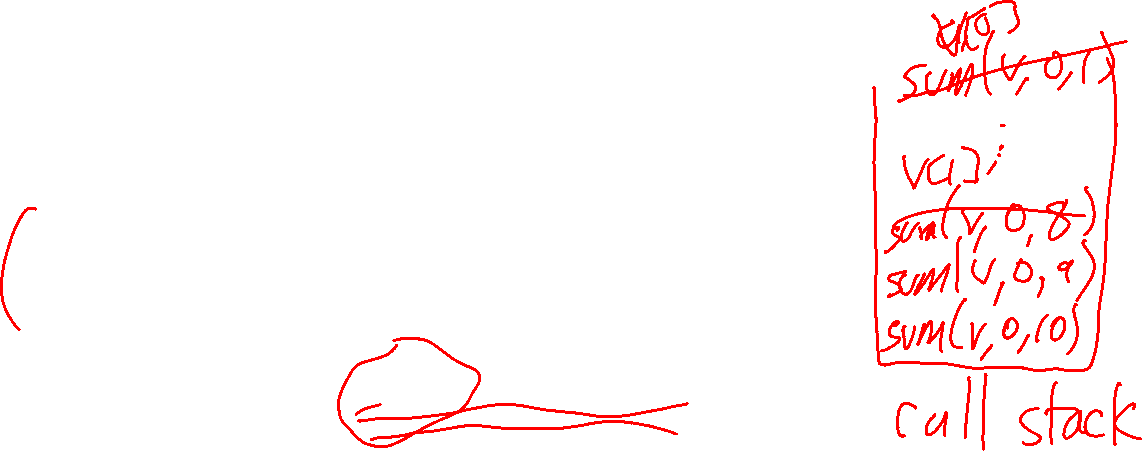 v[0]
sum(v,0,1)
v[1]
sum(v,0,8)
sum(v,0,9)
sum(v,0,10)
call stack